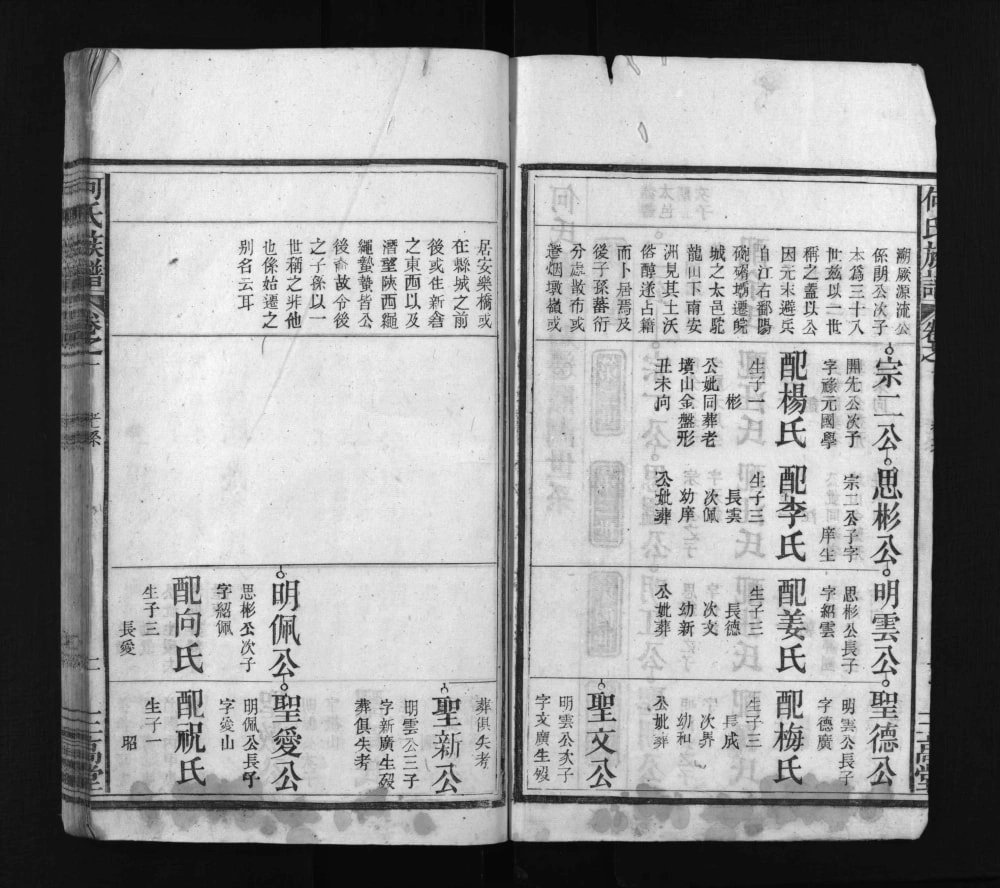 溯厥源流公
係朗公次子
本爲三十八
世茲以一世
稱之蓋以公
因元末避兵
自江右鄱陽
磁礵壋遷皖
城之太邑駝
龍山下南安
洲見其土沃
俗醇遂占籍
而卜居焉及
後子孫蕃衍
分處散布或
煙墩嶺或
宗二公
開先公次子
字祿元國學
配楊氏
生子一
彬
公妣同葬老
墳山金盤形
丑未向
思彬公
宗二公子字
庠生
配李氏
生子三
長雲
次佩
幼庠
公妣葬
明雲公
思彬公長子
字紹雲
配姜氏
生子三
長德
次文
幼新
公妣葬
聖德公
明雲公長子
字德廣
配梅氏
生子三
長成
次界
幼和
公妣葬
聖文公
明雲公次子
字文廣生歿
何氏族譜
卷之一
一
三高堂
居安樂橋或
在縣城之前
後或往新倉
之東西以及
潛望陝西繩
繩蟄蟄皆公
後裔故令後
之子孫以一
世稱之非他
也係始遷之
別名云耳
明佩公
思彬公次子
字紹佩
配向氏
生子三
長愛
葬俱失考
聖新公
明雲公三子
字新廣生歿
葬俱失考
聖愛公
明佩公長子
字愛山
配祝氏
生子一
昭
何氏族譜
卷之一
世系
二
三高堂